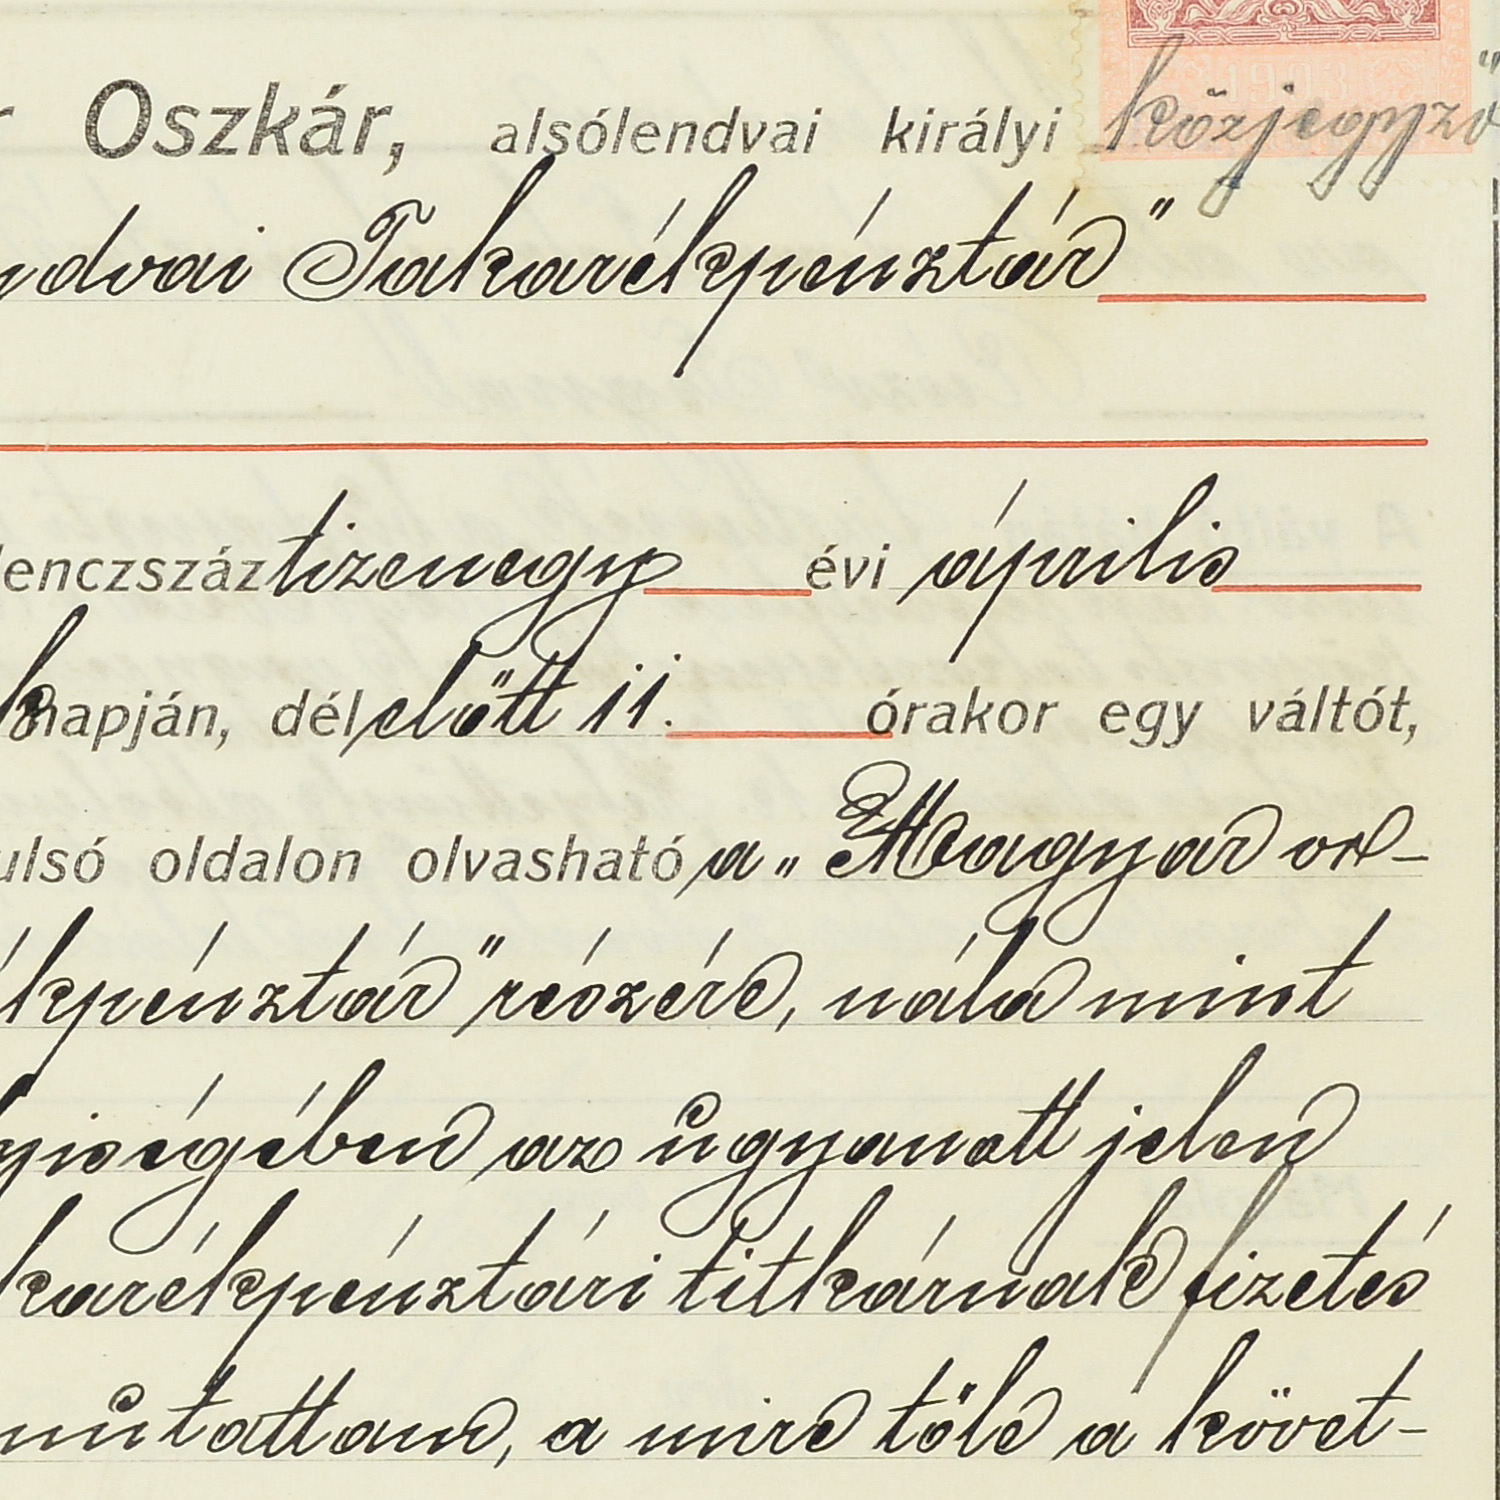 r Oszkár, alsólendvai királyi közjegyző
ndvai Takarékpénztár"
lenczszáztizenegy évi április
k napján, délelőtt 11. órakor egy váltót,
ulsó oldalon olvasható a „Magyar or-
ékpénztár" részére, nála mint
yiségében az ugyanott jelen
karékpénztári titkárnak fizetés
mutattam, a mire tőle a követ-